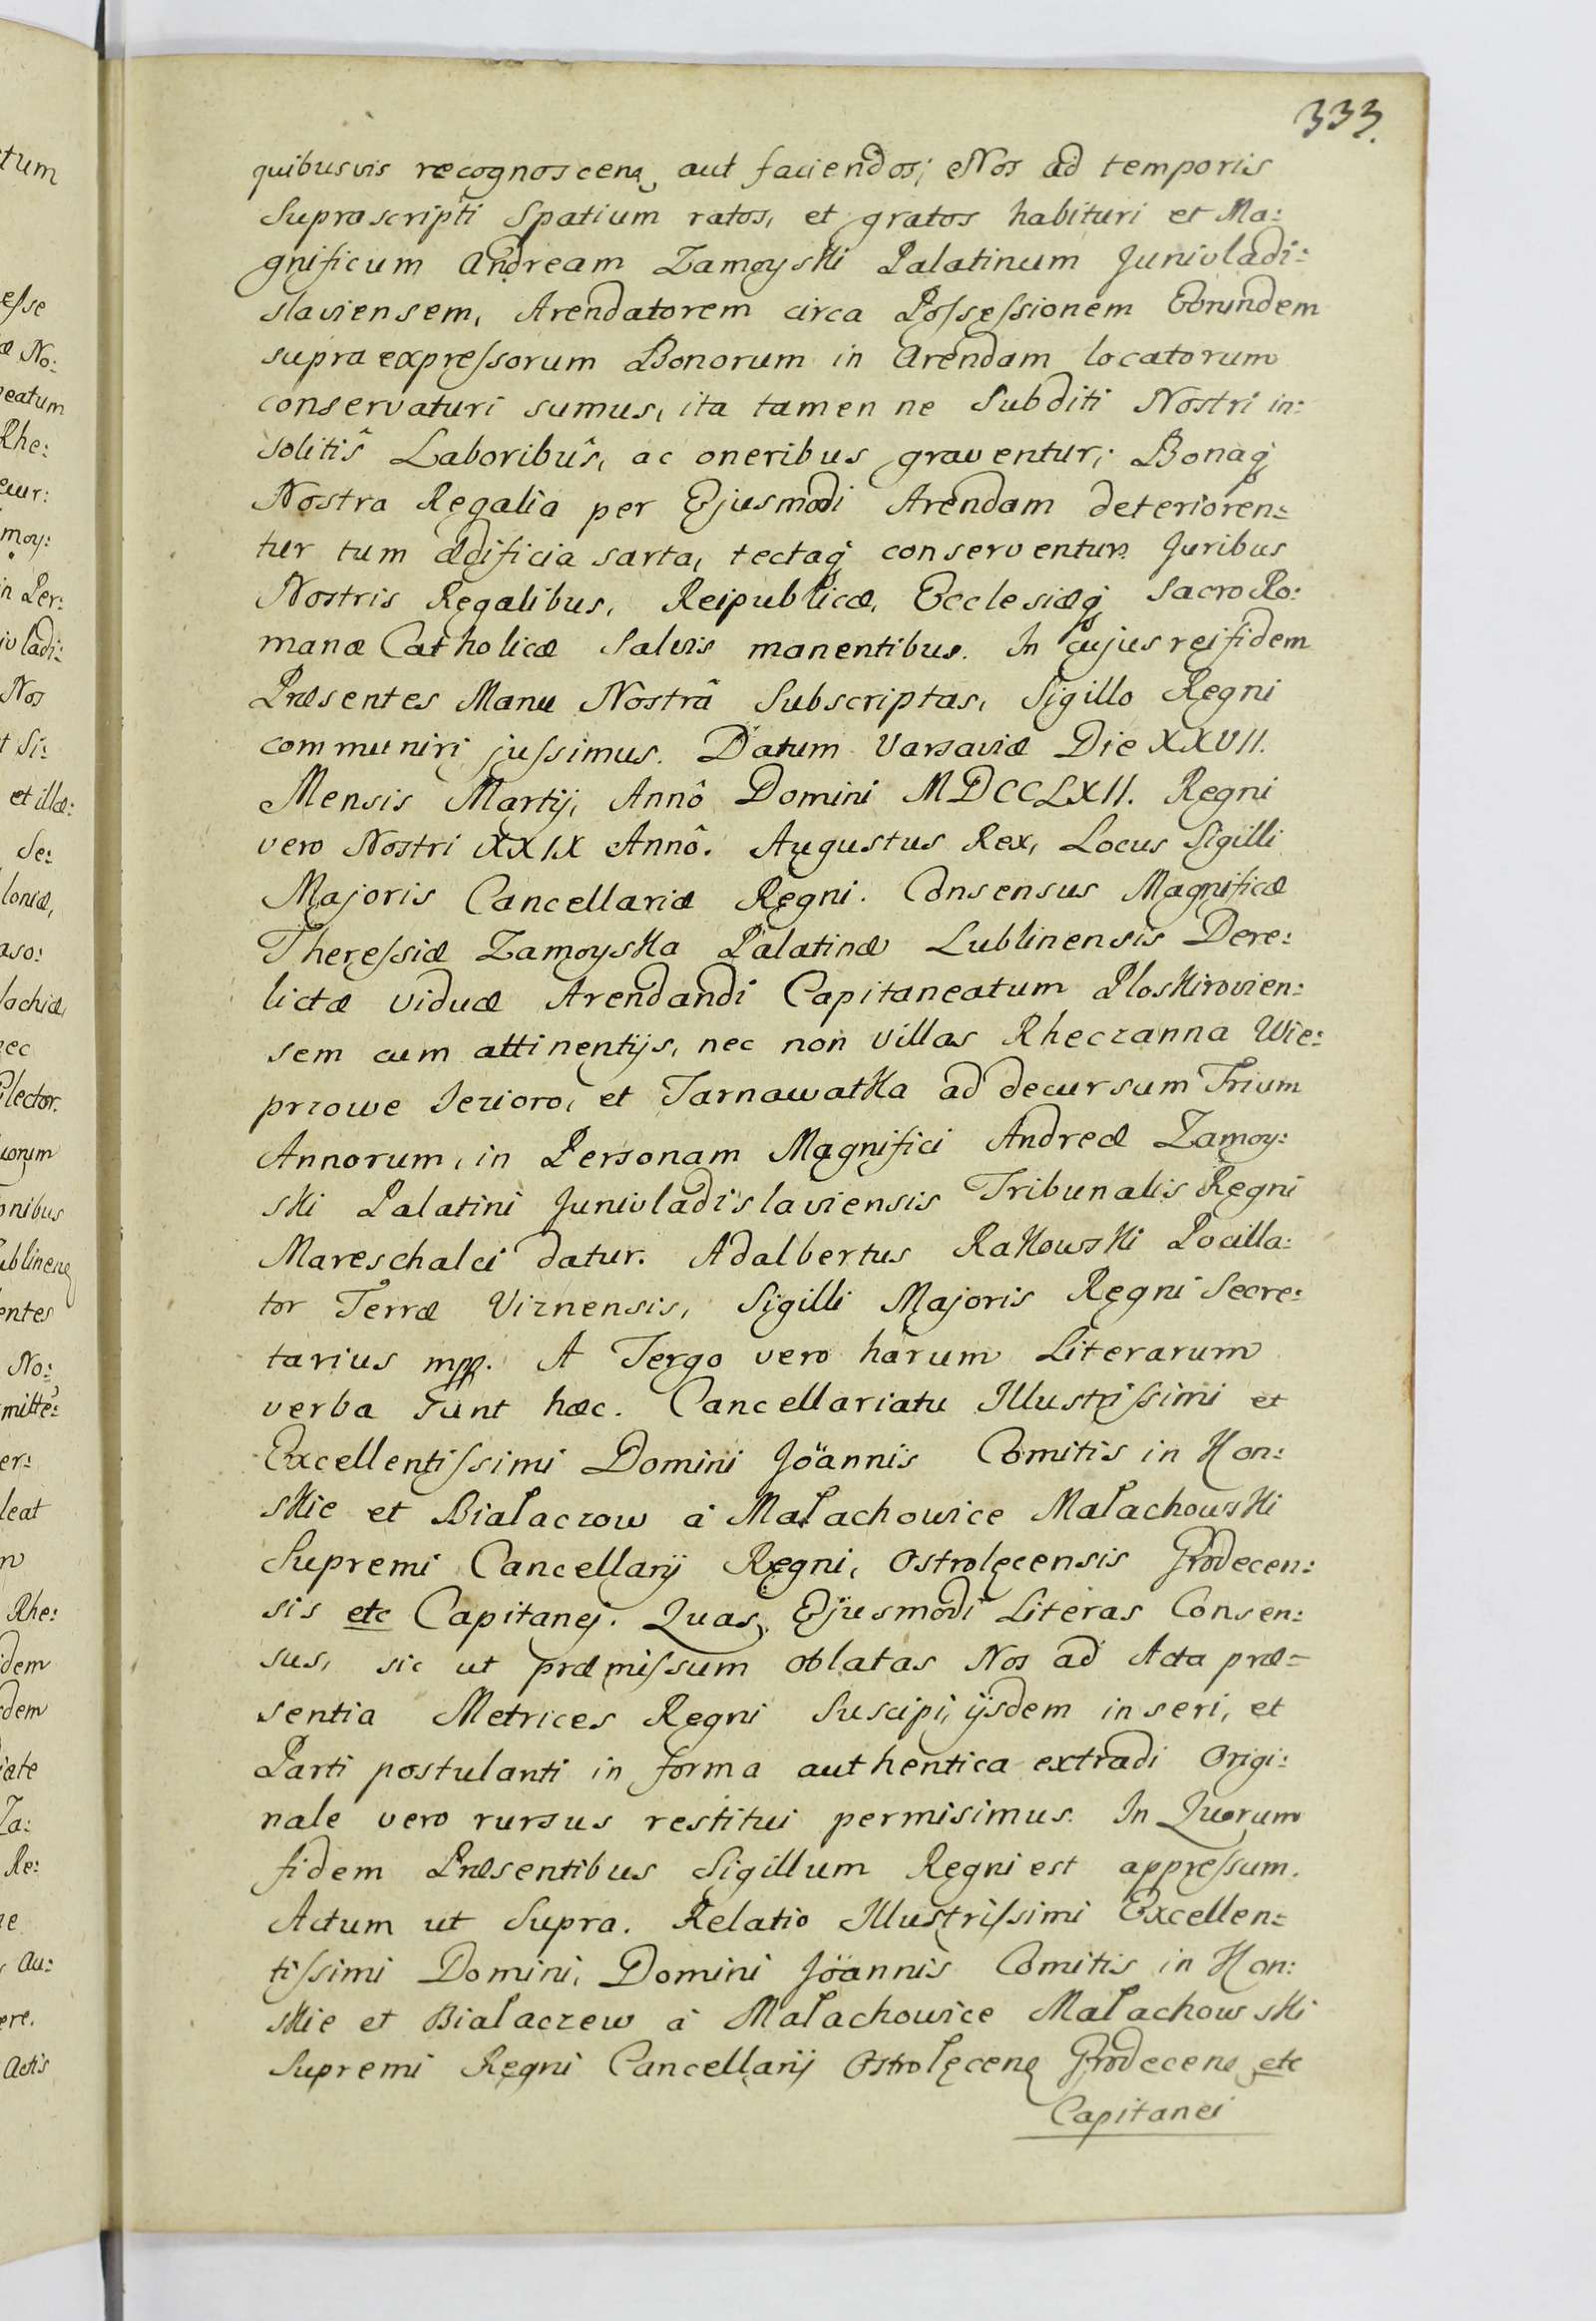 333.
quibusvis recognoscen. aut faciendos; Nos ad temporis
Suprascripti Spatium ratos, et gratos habituri et Ma:
gnificum Andream Zamoyski Palatinum Junivladi:
slaviensem, Arendatorem circa Possessionem Eorundem
supra expressorum Bonorum in Arendam locatorum
conservaturi sumus, ita tamen ne Subditi Nostri in:
solitis Laboribus, ac oneribus graventur; Bonaq
Nostra Regalia per Ejusmodi Arendam deterioren:
tur tum ædificia sarta, tectaq conserventur. Juribus
Nostris Regalibus, Reipublicæ, Ecclesiæq Sacro Ro:
manæ Catholicæ Salvis manentibus. In cujus rei fidem
Præsentes Manu Nostrâ Subscriptas, Sigillo Regni
communiri jussimus. Datum Varsaviæ Die XXVII.
Mensis Martij, Annô Domini MDCCLXII. Regni
vero Nostri XXIX Annô. Augustus Rex, Locus Sigilli
Majoris Cancellariæ Regni. Consensus Magnificæ
Theressiæ Zamoyska Palatinæ Lublinensis Dere:
lictæ viduæ Arendandi Capitaneatum Ploskirovien:
sem cum attinentijs, nec non Villas Rheczanna Wie:
przowe Jezioro, et Tarnawatka ad decursum Trium
Annorum, in Personam Magnifici Andreæ Zamoy:
ski Palatini Junivladislaviensis Tribunalis Regni
Mareschalci datur. Adalbertus Rakowski Pocilla:
tor Terræ Viznensis, Sigilli Majoris Regni Secre:
tarius mpp. A Tergo vero harum Literarum
verba sunt hæc. Cancellariatu Illustrissimi et
Excellentissimi Domini Jöannis Comitis in Kon:
skie et Białaczow a Małachowice Małachowski
Supremi Cancellarij Regni, Ostrolęcensis Grodecen:
sis etc Capitanej. Quas, Ejusmodi Literas Consen:
sus, sic ut præmissum oblatas Nos ad Acta præ=
sentia Metrices Regni Suscipi, ijsdem inseri, et
Parti postulanti in forma authentica extradi Origi:
nale vero rursus restitui permisimus. In Quorum
fidem Præsentibus Sigillum Regni est appressum.
Actum ut Supra. Relatio Illustrissimi Excellen:
tissimi Domini, Domini Jöannis Comitis in Kon:
skie et Białaczew a Małachowice Małachowski
Supremi Regni Cancellarij Ostrolęcen Grodecen etc
Capitanei